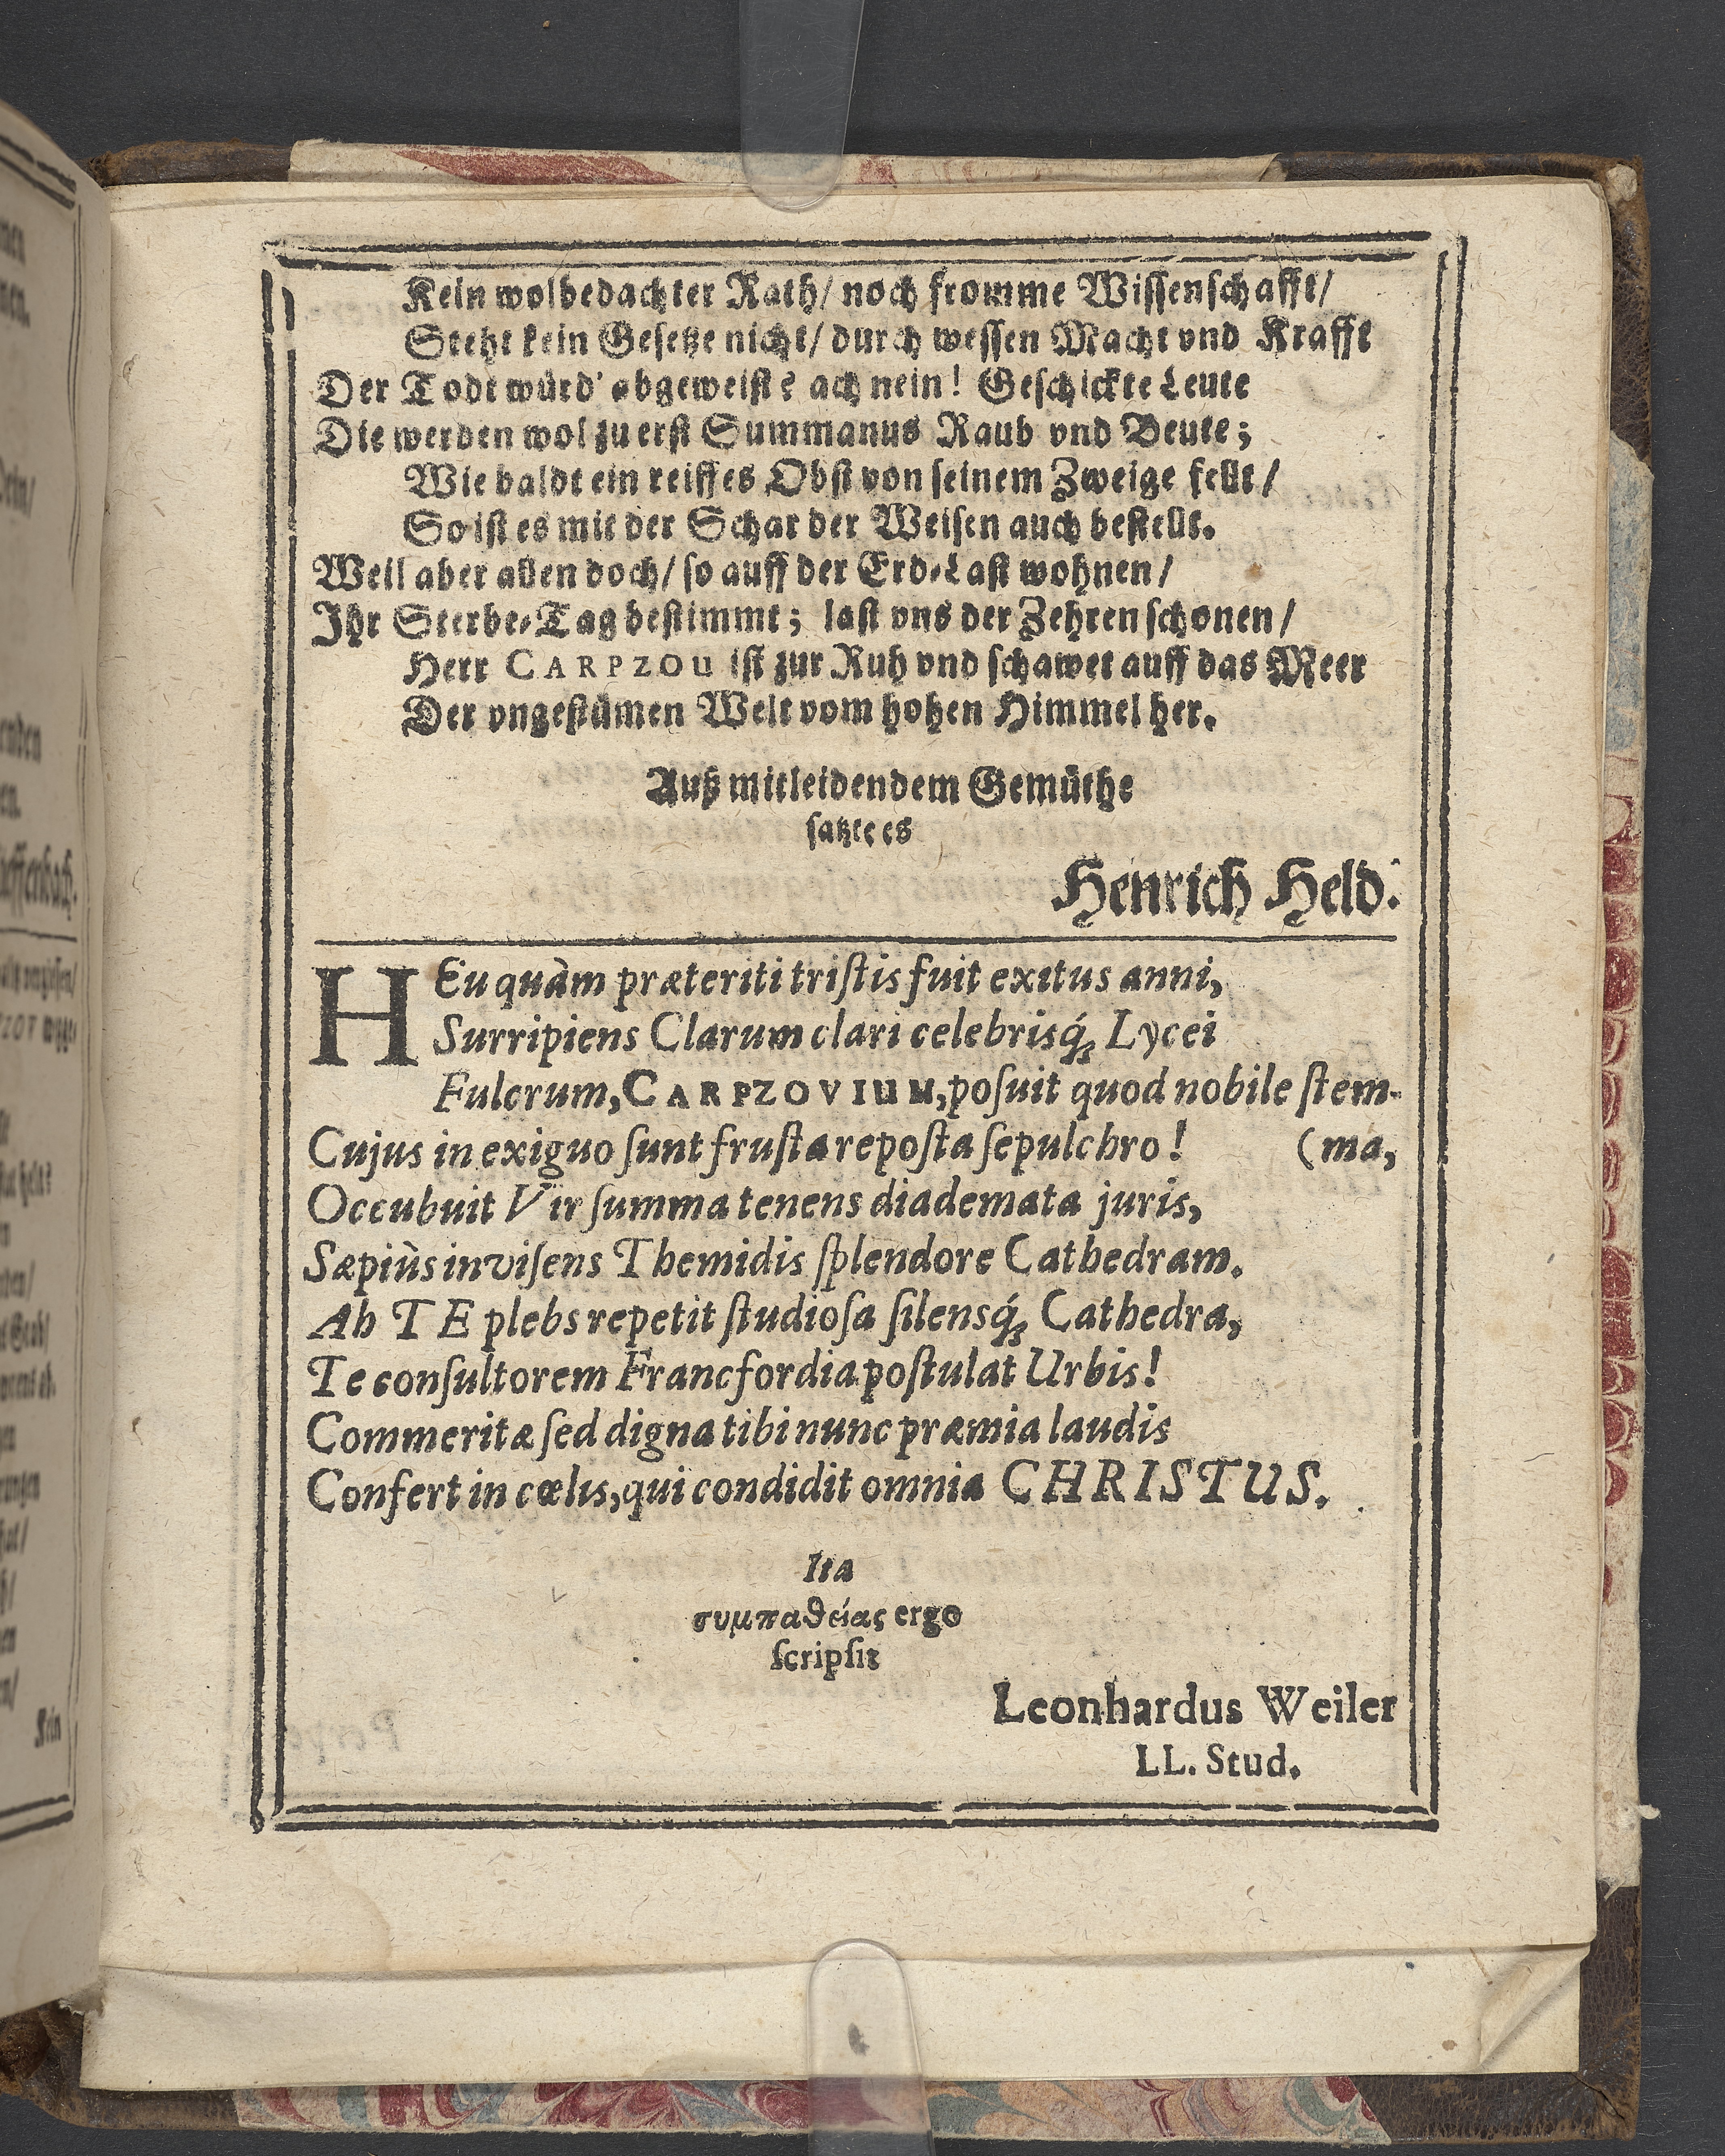 Kein wolbedachter Rath/ noch fromme Wissenschafft/
Steht kein Gesetze nicht/ durch wessen Macht vnd Krafft
Der Todt würd' abgeweist? ach nein! Geschickte Leute
Die werden wol zu erst Summanus Raub vnd Beute;
Wie baldt ein reiffes Obst von seinem Zweige fellt/
So ist es mit der Schar der Weisen auch bestellt.
Weil aber allen doch/ so auff der Erd-Last wohnen/
Ihr Sterbe-Tag bestimmt; last vns der Zehren schonen/
Herr CARPZOU ist zur Ruh vnd schawet auff das Meer
Der vngestümen Welt vom hohen Himmel her.
Auß mitleidendem Gemüthe
satzte es
Henrich Held.
HEu quàm præteriti triſtis fuit exitus anni,
Surripiens Clarum clari celebrisq́; Lycei
Fulcrum, CARPZOVIUM, poſuit quod nobile ſtem-
Cujus in exiguo ſunt fruſta repoſta ſepulchro! (ma,
Occubuit Vir ſumma tenens diademata juris,
Sæpiùs inviſens Themidis ſplendore Cathedram.
Ab TE plebs repetit ſtudioſa ſilensq́; Cathedra,
Te conſultorem Francfordia poſtulat Urbis!
Commeritæ ſed digna tibi nunc præmia laudis
Confert in cœlis, qui condidit omnia CHRISTUS.
Ita
συμπαθείας ergo
ſcripſit
Leonhardus Weiler
LL. Stud.